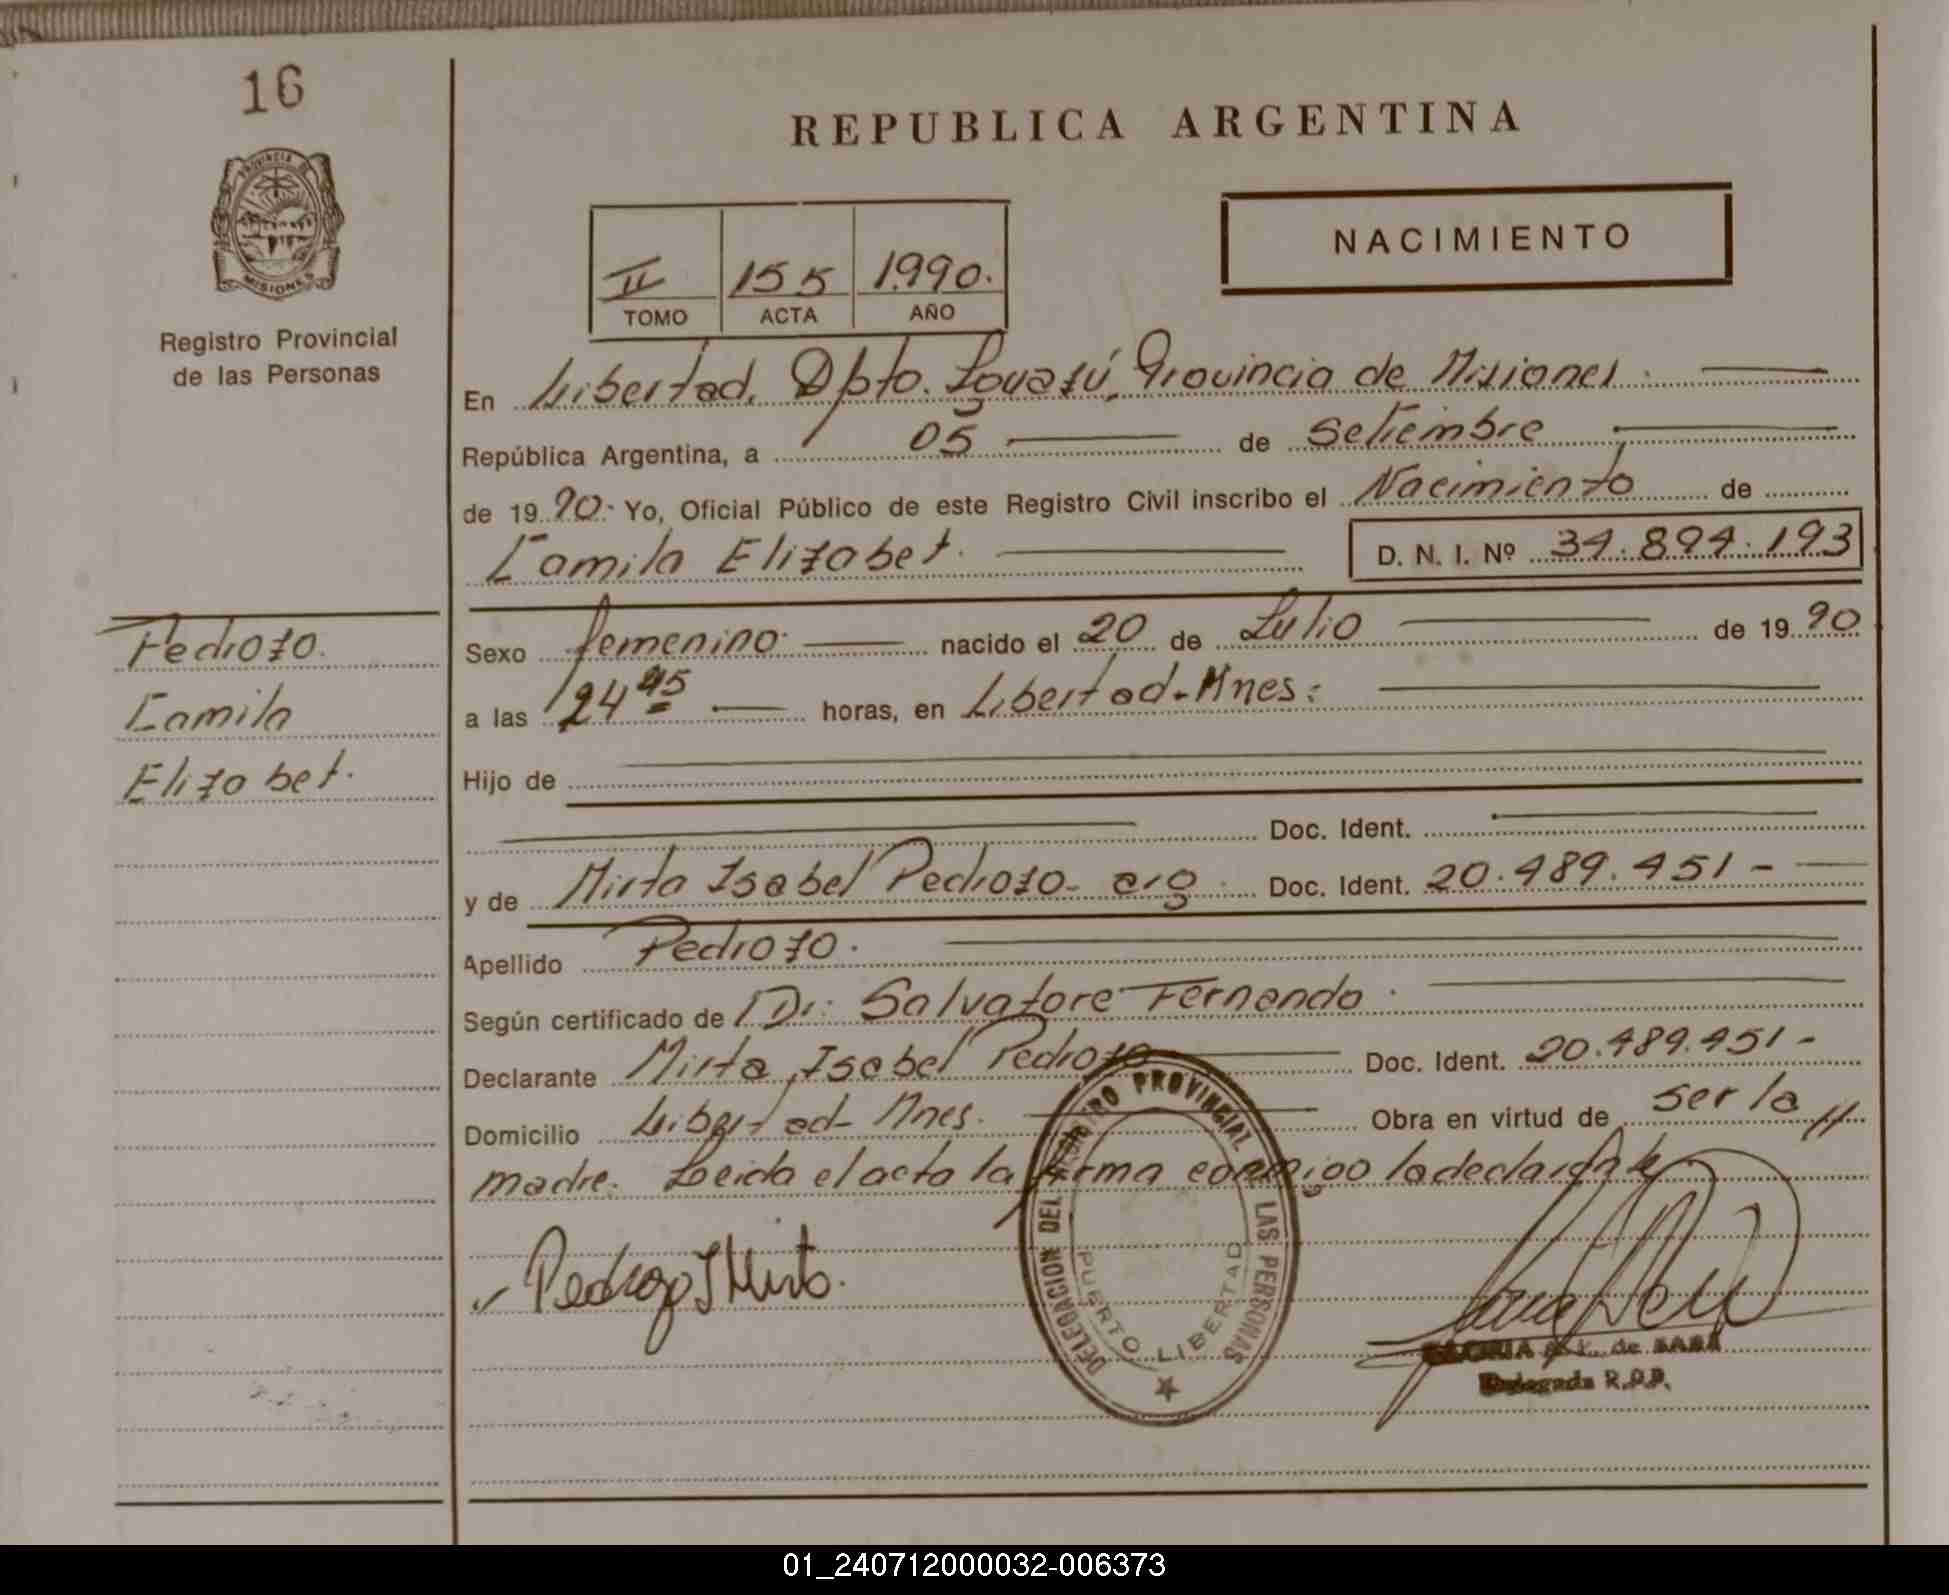 16
PROVINCIA DE
MISIONES
Registro Provincial
de las Personas
REPUBLICA ARGENTINA
II 155 1.990.
TOMO ACTA AÑO
NACIMIENTO
En Libertad. Dpto. Iguazú, Provincia de Misiones.
República Argentina, a 05 de Setiembre
de 1990.- Yo, Oficial Público de este Registro Civil inscribo el Nacimiento de
Camila Elizabet. D. N. I. Nº 34.894.193
Pedrozo.
Camila
Elizabet.
Sexo femenino. nacido el 20 de Julio de 1990
a las 24 45 horas, en Libertad - Mnes.
Hijo de
Doc. Ident.
y de Mirta Isabel Pedrozo - arg. Doc. Ident. 20.489.451 -
Apellido Pedrozo.
Según certificado de Dr. Salvatore Fernando.
Declarante Mirta Isabel Pedrozo Doc. Ident. 20.489.451 -
Domicilio Libertad - Mnes. Obra en virtud de ser la //
madre. Leida el acta la firma conmigo la declarante.
Pedrozo I Mirta.
DELEGACION DEL REGISTRO PROVINCIAL DE LAS PERSONAS
PUERTO LIBERTAD
GLORIA de
Delegada R.P.P.
01_240712000032-006373